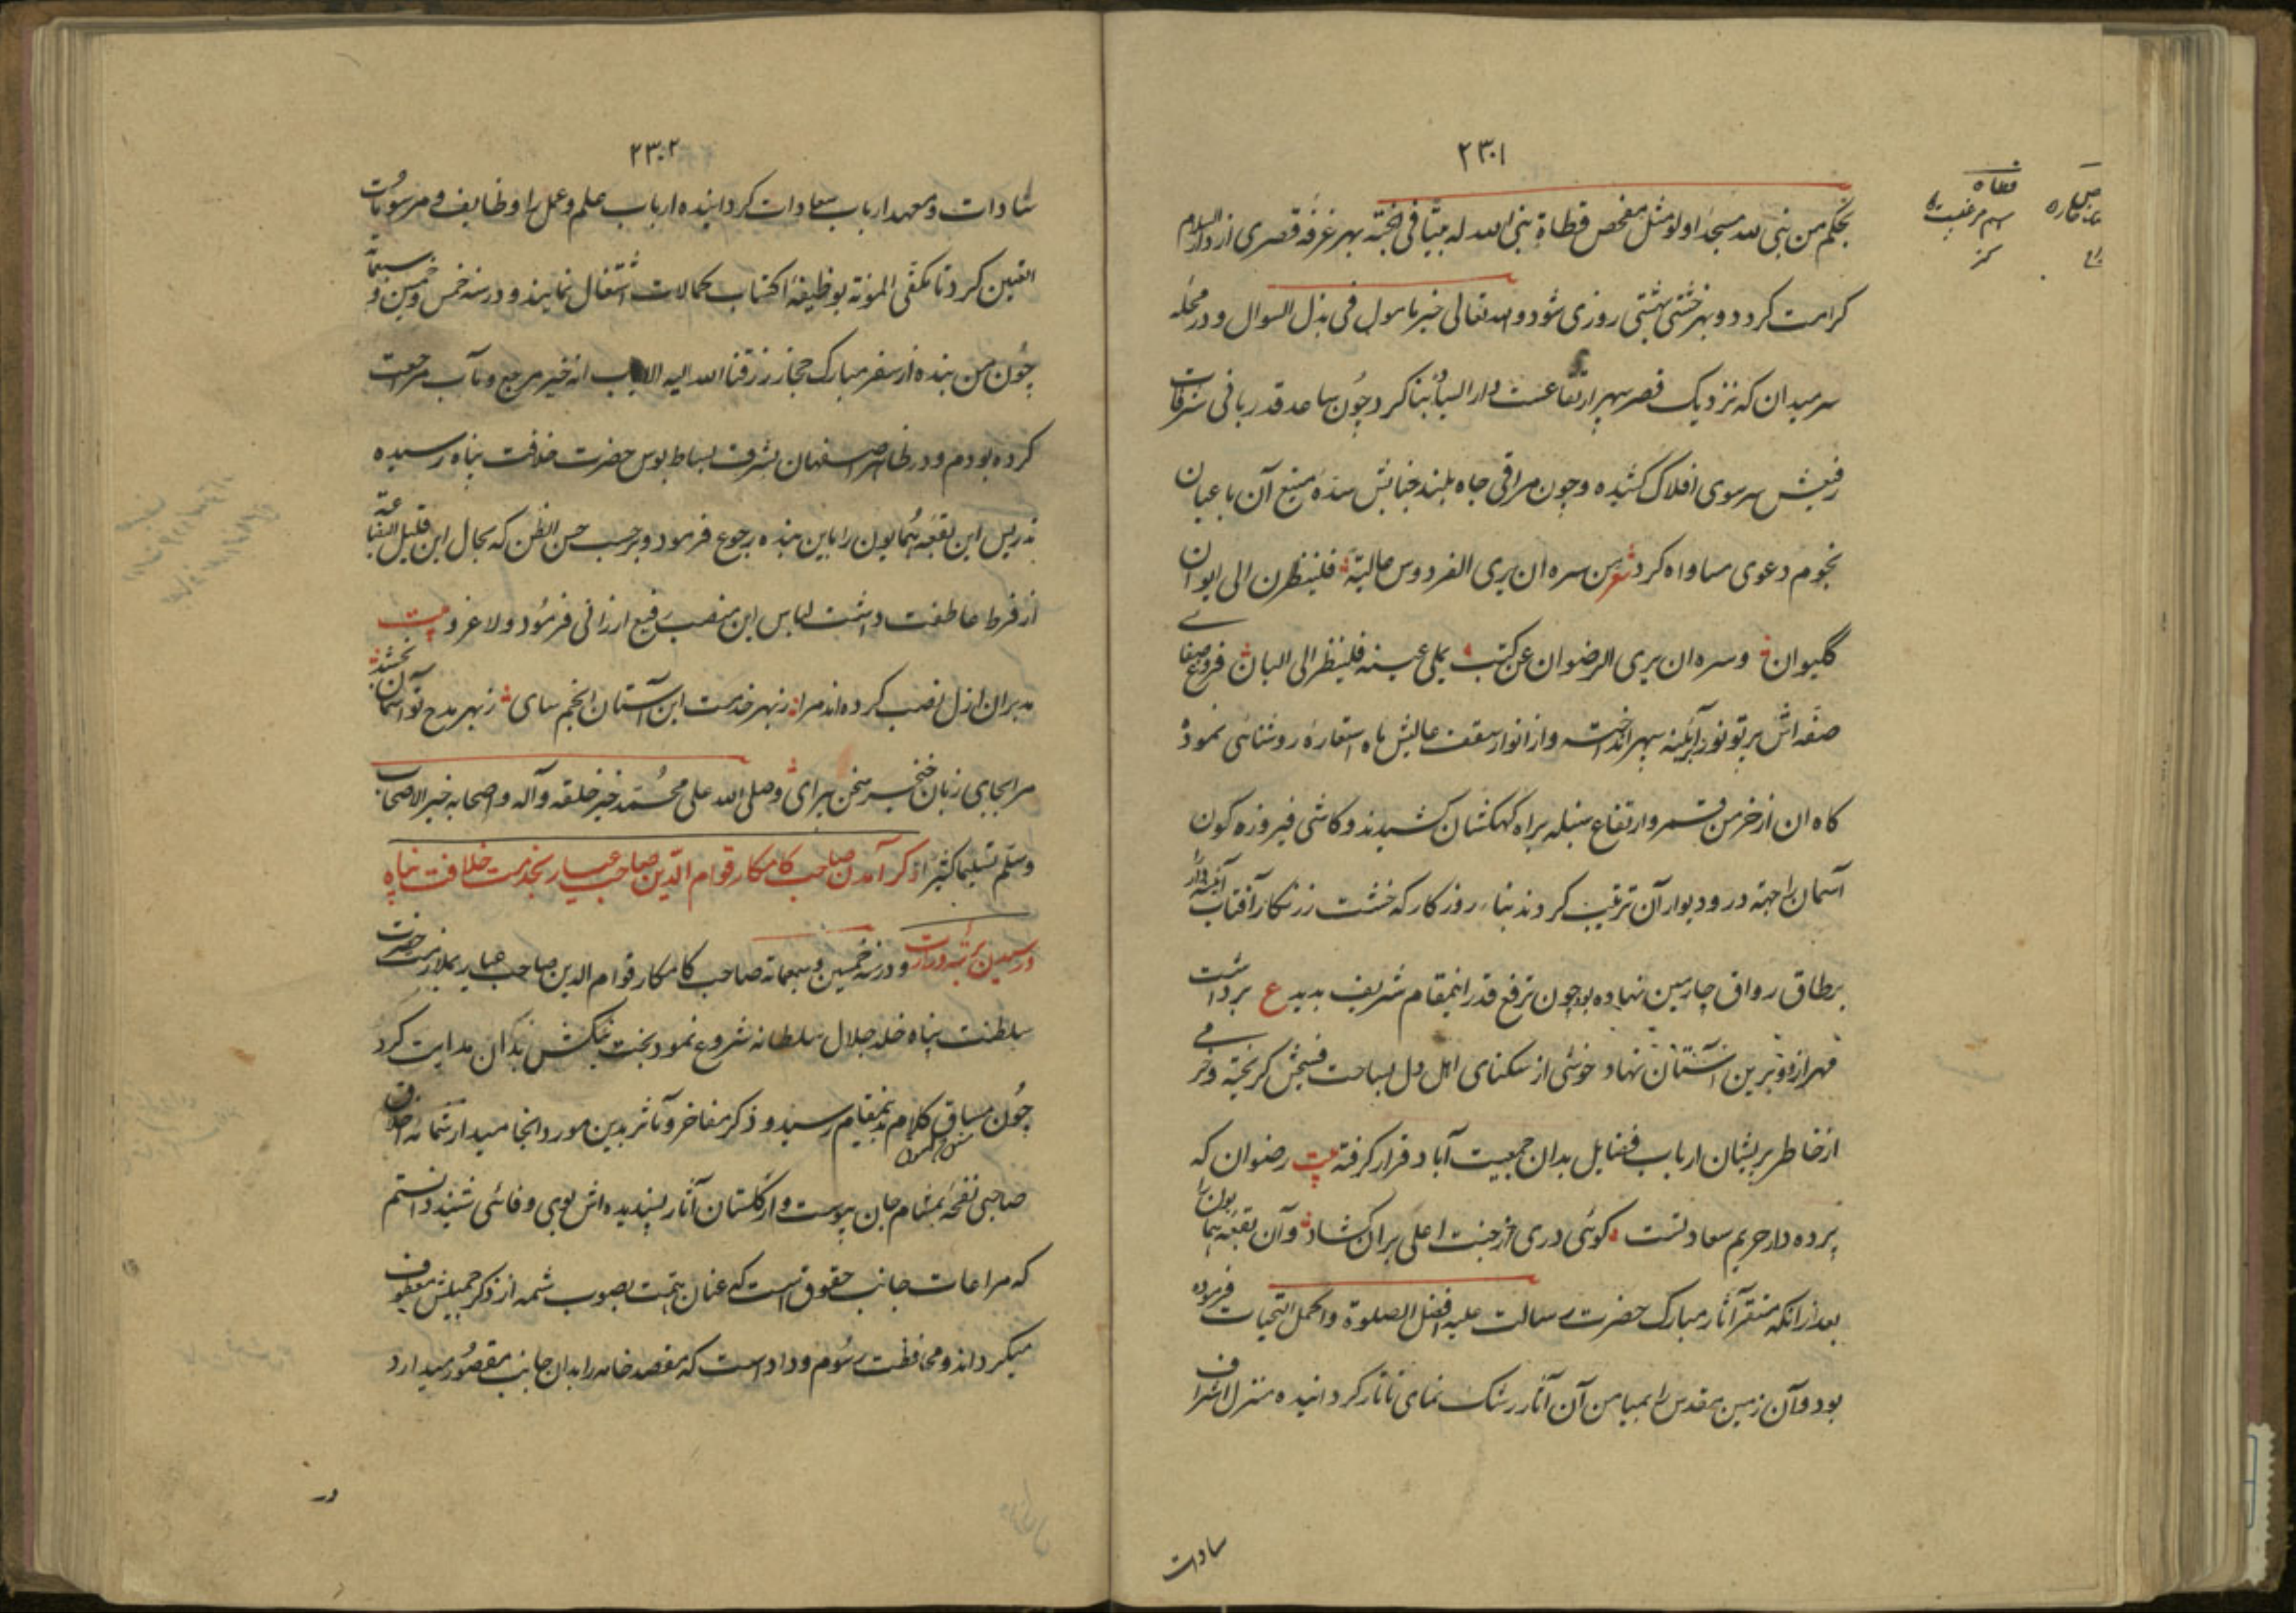 ۲۳۰۱
بحکم من بنی لله مسجدا ولو مثل مفحص قطاة بنی الله له بیتا فی الجنة بهر غرفه قصری از دار السلام
کرامت کردد و بهر خشتی بهشتی روزی شود والله تعالی خیر مامول فی بذل السوال و در محله
سر میدان که نزدیک قصر سپهر ارتفاعست دار السیاده بنا کرد چون ساعد قدر بانی شرفات
رفیعش سر سوی افلاک کشیده و چون مراقی جاه بلند جنابش سده منیع آن با عیان
نجوم دعوی مساواه کرد شعر من سره ان یری الفردوس عالیة فلینظرن الی ایوان
کلیوان وسره ان یری الرضوان عن کثب یملی عینه فلینظر الی البان فروغ صفای
صفه اش پرتو نور بر آینه سپهر انداخته و از انوار سقف عالیش ماه استعاره روشنائی نمود
کاه ان از خرمن قمر و ارتفاع سنبله براه کهکشان کشیدند و کاشی فیروزه کون
آسمان را جهة در و دیوار آن ترتیب کردند بناء روزکار که خشت زرنکار آفتاب
بر طاق رواق چارمین نهاده بود چون ترفع قدر اینمقام شریف بدید ع برداشت
مهر ازو و برین آستان نهاد خوشی از سکنای اهل دل بساحت فسیحش کریخته و خرمی
از خاطر پریشان ارباب فضایل بدان جمعیت آباد قرار کرفته بیت رضوان که
پرده دار حریم سعادتست کوئی دری از جنت اعلی بران کشاد و آن بقعه همایون را
بعد از انکه مستقر آثار مبارک حضرت رسالت علیه افضل الصلوة و اکمل التحیات فرموده
بود و آن زمین مقدس را بمیامن آن آثار رشک نمای تاتار کردانیده منزل اشراف
سادات
۲۳۰۲
سادات و معهد ارباب سعادات کردانیده ارباب علم و عمل را وظایف و مرسومات
تعیین کرد تا مکفی المونة بوظیفه اکتساب کمالات اشتغال نمایند و در سنه خمس و خمسین و سبعمائة
چون من بنده از سفر مبارک حجاز رزقنا الله الیه الایاب انه خیر مرجع و مآب مراجعت
کرده بودم و در ظاهر اصفهان بشرف بساط بوس حضرت خلافت پناه رسیده
تدریس این بقعه همایون را باین بنده رجوع فرمود و بر حسب حسن الظن که بحال این قلیل البضاعة
از فرط عاطفت داشت لباس این منصب رفیع ارزانی فرمود ولا غرو بیت
مدبران ازل نصب کرده اند مرا ز بهر خدمت این آستان انجم سای ز بهر مدح تو آسمان بخشد
مرا بجای زبان خنجر سخن پیرای وصلی الله علی محمد خیر خلقه وآله واصحابه خیر الاصحاب
وسلم تسلیما کثیرا ذکر آمدن صاحب کامکار قوام الدین صاحب عیار بخدمت خلافت پناه
و رسیدن برتبه وزارت و در سنه خمسین و سبعمائة صاحب کامکار قوام الدین صاحب عیار بملازمت حضرت
سلطنت پناه خلد جلال سلطانه شروع نمود بخت نیکش بدان هدایت کرد
چون مساق کلام بدینمقام رسید و ذکر مفاخر و مآثر بدین مورد انجامید از شمائم اخلاق
صاحبی نفحه بمشام جان پیوست و از کلستان آثار پسندیده اش بوی وفائی شنید دانستم
که مراعات جانب حقوق است که عنان همت بصوب شمه از ذکر جمیلش معطوف
میکرداند و محافظت رسوم وداد است که مقصد خامه را بدان جانب مقصور میدارد
در